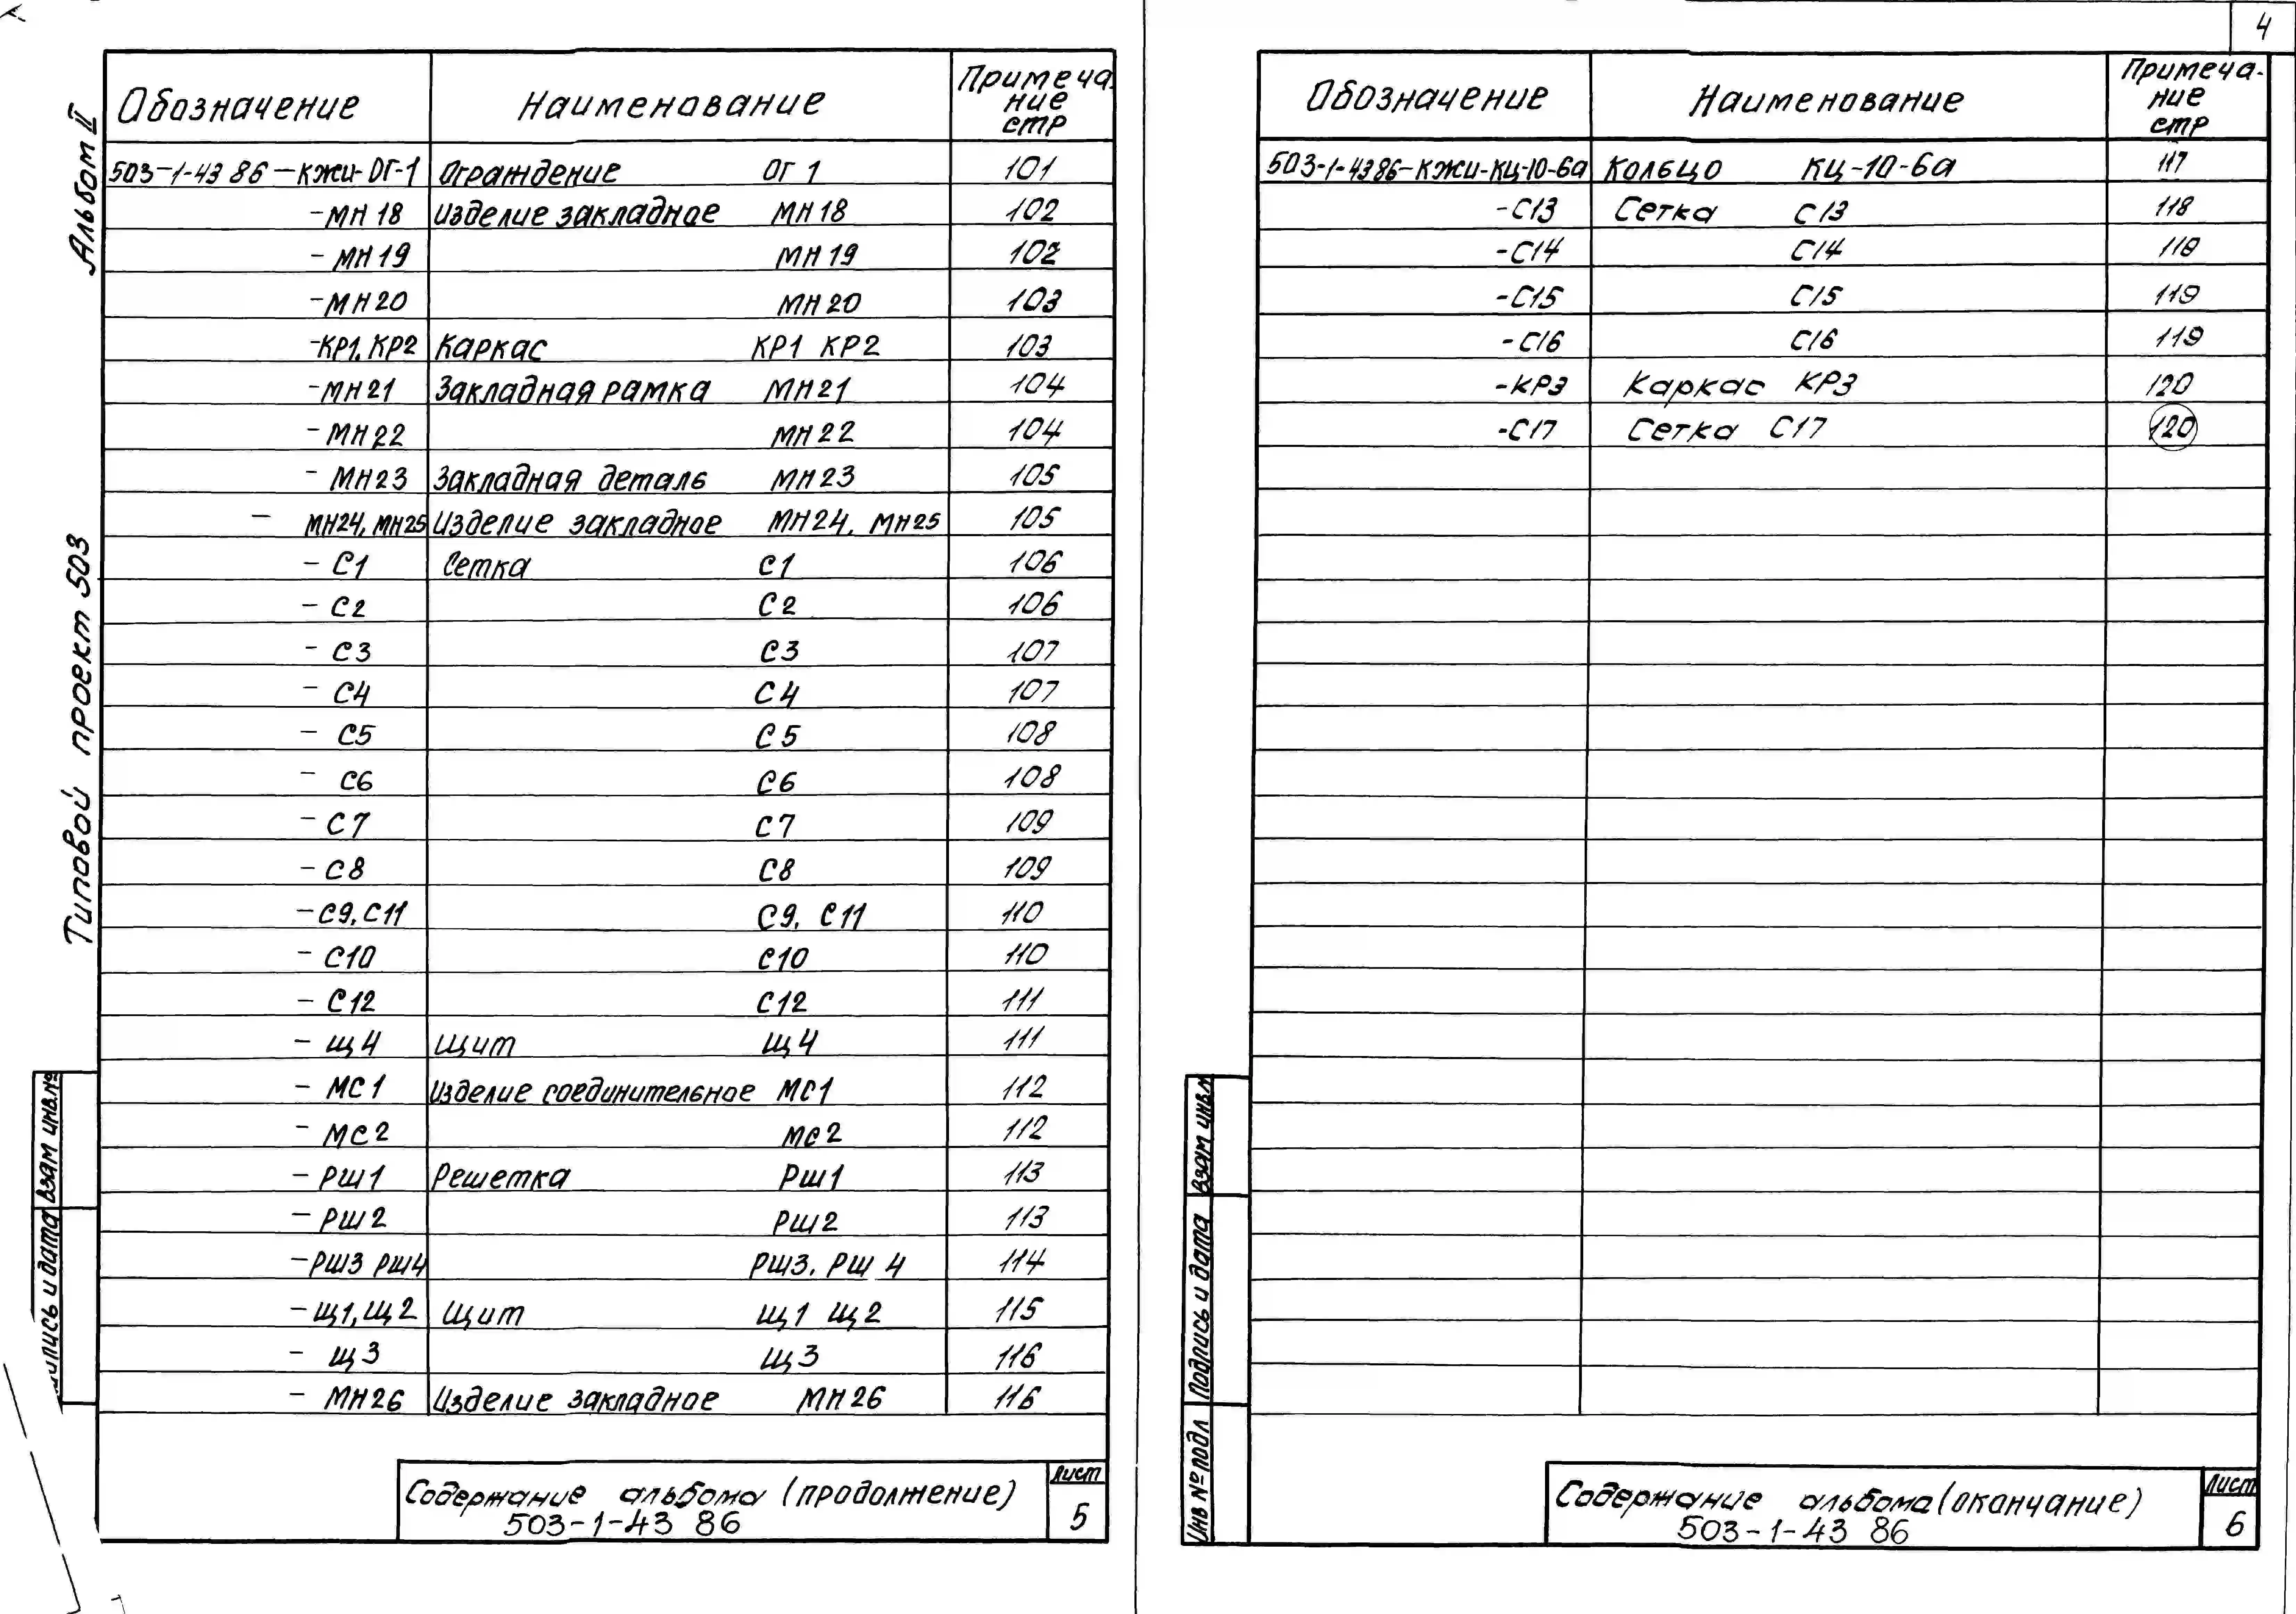 4
Альбом II
Типовой проект 503
Обозначение Наименование Примеча-
ние
стр
503-1-43 86-КЖИ-ОГ-1 Ограждение ОГ 1 101
-МН 18 Изделие закладное МН 18 102
- МН 19 МН 19 102
-МН 20 МН 20 103
-КР1, КР2 Каркас КР1 КР2 103
-МН21 Закладная рамка МН21 104
-МН22 МН 22 104
- МН23 Закладная деталь МН23 105
- МН24, МН25 Изделие закладное МН24, МН25 105
- С1 Сетка С1 106
- С2 С2 106
- С3 С3 107
- С4 С4 107
- С5 С5 108
- С6 С6 108
- С7 С7 109
- С8 С8 109
-С9, С11 С9, С11 110
- С10 С10 110
- С12 С12 111
- Щ4 Щит Щ4 111
- МС1 Изделие соединительное МС1 112
- МС2 МС2 112
- РШ1 Решетка РШ1 113
- РШ2 РШ2 113
-РШ3 РШ4 РШ3, РШ 4 114
-Щ1, Щ2 Щит Щ1 Щ2 115
- Щ3 Щ3 116
- МН26 Изделие закладное МН 26 116
Взам инв.№
дпись и дата
Содержание альбома (продолжение)
503-1-43 86
Лист
5
Обозначение Наименование Примеча-
ние
стр
503-1-43 86-КЖИ-КЦ-10-6а Кольцо КЦ-10-6а 117
-С13 Сетка С13 118
-С14 С14 118
-С15 С15 119
-С16 С16 119
-КР3 Каркас КР3 120
-С17 Сетка С17 120
Взам инв.№
Подпись и дата
Инв № подл
Содержание альбома (окончание)
503-1-43 86
Лист
6